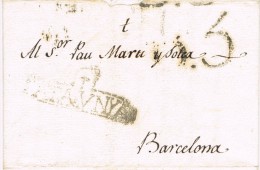 t
Al S.or Pau Maru y Solea
5
Barcelona